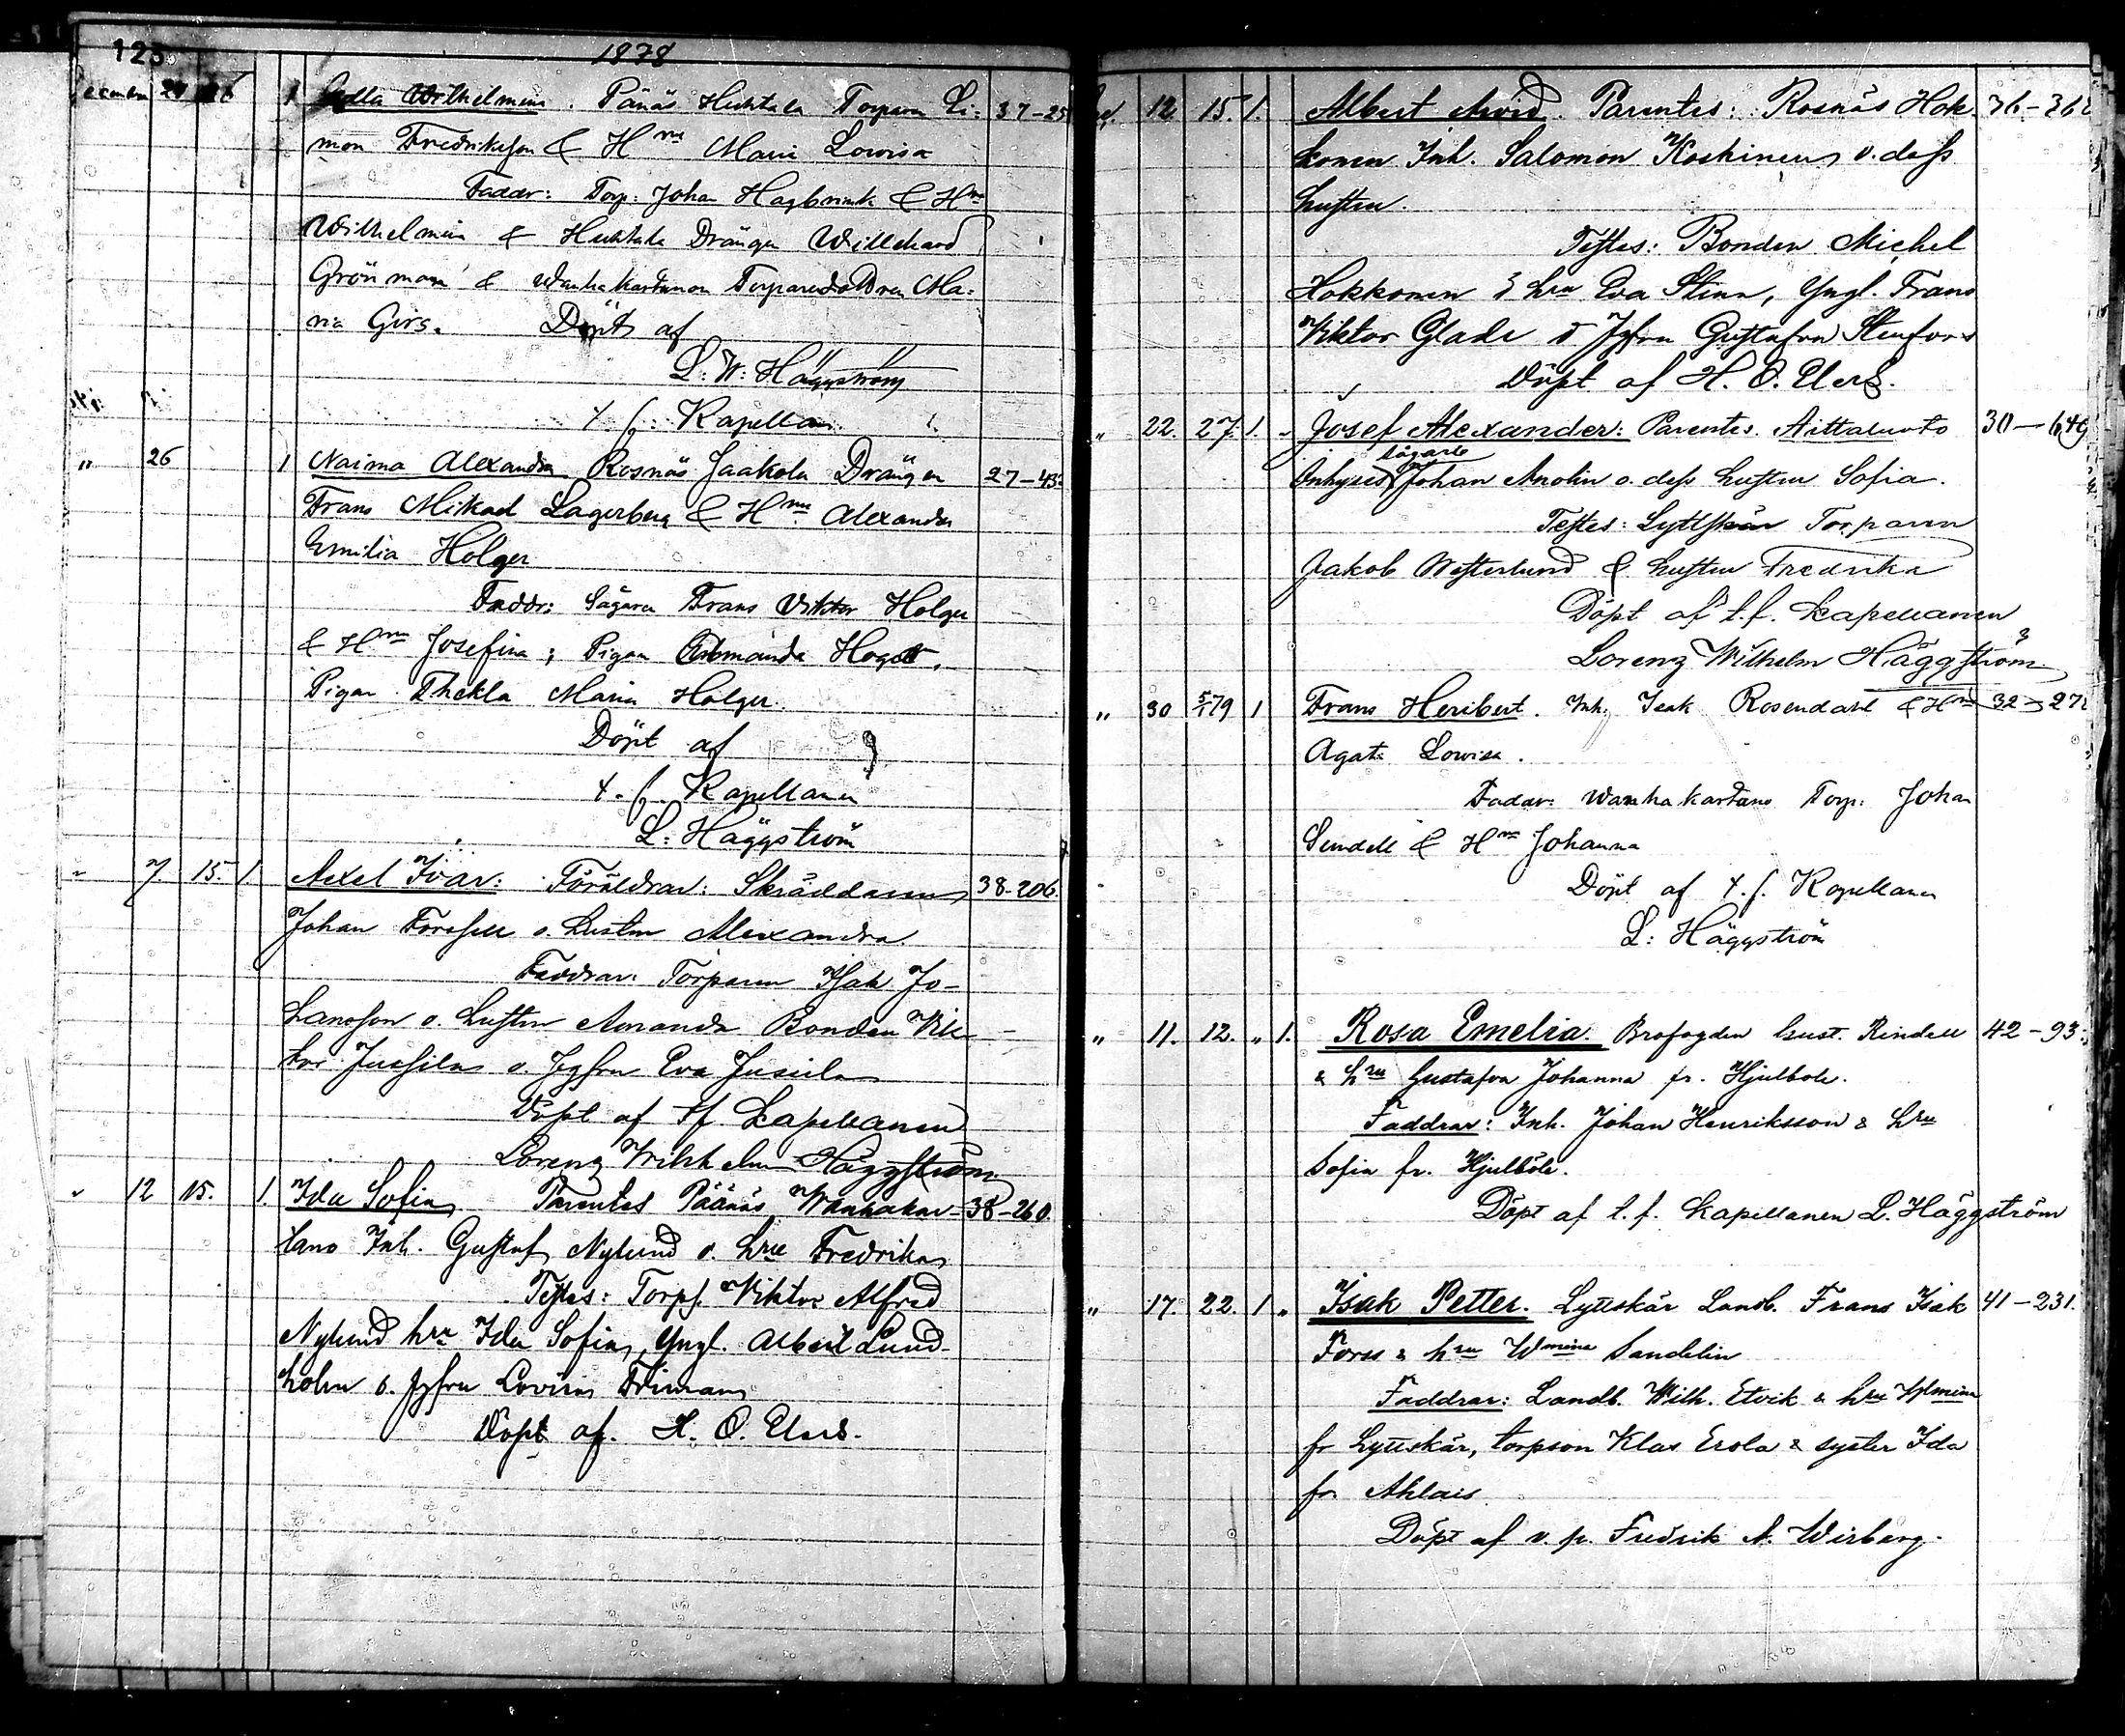 125
1878
December 24 26 1 Wilhelmina. Pänäs Huhtala Torparen Si- 37-25
mon Fredriksson & Hru Maria Lowisa
Faddr: Torp: Johan Hagbrink & Hru
Wilhelmina & Huhtala Drängen Willehard
Grönman & Wanhakartanon Torparedottren Ma-
ria Girs. Döpt af
L. W. Häggström
t. f. Kapellan
" 26 1 Naima Alexandra Rosnäs Jaakola Drängen 27-43
Frans Mikael Lagerberg & Hru Alexandra
Emilia Holger
Faddr: Sågaren Frans Viktor Holger
& Hru Josefina; Pigan Amanda
Pigan Thekla Maria Holger.
Döpt af
t. f. Kapellanen
L: Häggström
" 7. 15. 1. Axel Ivar: Föräldrar: Skräddaren 38-206.
Johan Forssell o. hustrun Alexandra.
Faddrar: Torparen Isak Jo-
hansson o. hustrun Amanda Bonden Vik-
tor Jussila o. Jgfrn Eva Jusila
Döpt af tf. kapellanen
Lorenz Wilhelm Häggström
" 12 15. 1. Ida Sofia, Parentes Päänäs Wanhakar- 38-260
tano Inh. Gustaf Nylund o. hru Fredrika
Testes: Torps. Viktor Alfred
Nylund hru Ida Sofia, Yngl. Albert Lund-
holm o. jgfrn Lovisa Friman
Döpt af. H. O. Elers.
12. 15. 1. Albert Arvid. Parentes: Rosnäs Hok- 36-362
konen Inh. Salomon Koskinen o. dess
hustru.
Testes: Bonden Michel
Hokkonen & hru Eva Stina, Yngl. Frans
Viktor Glade o Jgfrn Gustafva Stenfors
Döpt af H. O. Elers.
" 22. 27. 1. " Josef Alexander: Parentes. Aittaluoto 30-649
sågare
Inhyses Johan Anolin o. dess hustru Sofia.
Testes: Lyttskär Torparen
Jakob Westerlund & hustrun Fredrika
Döpt af t. f. kapellanen
Lorenz Wilhelm Häggström
" 30 5/1 79 1 Frans Heribert. Inh. Isak Rosendahl & Hru 32-272
Agata Lowisa.
Faddr: Wanhakartano Torp: Johan
Sundell & Hru Johanna
Döpt af t. f. Kapellanen
L: Häggström
" 11. 12. " 1. Rosa Emelia. Brofogden Gust. Rindell 42-93
& hru Gustafva Johanna fr. Hjulbole.
Faddrar: Inh. Johan Henriksson & hru
Sofia fr. Hjulböle.
Döpt af t. f. kapellanen L. Häggström
" 17. 22. 1 " Isak Petter. Lyttskär Landb. Frans Isak 41-231.
Forss & hru Wmina Sandelin
Faddrar: Landb. Wilh. Etvik & hru Wlmina
fr Lyttskär, torpson Klas Erola & syster Ida
fr Ahlais.
Döpt af v. p. Fredrik A. Wirberg.